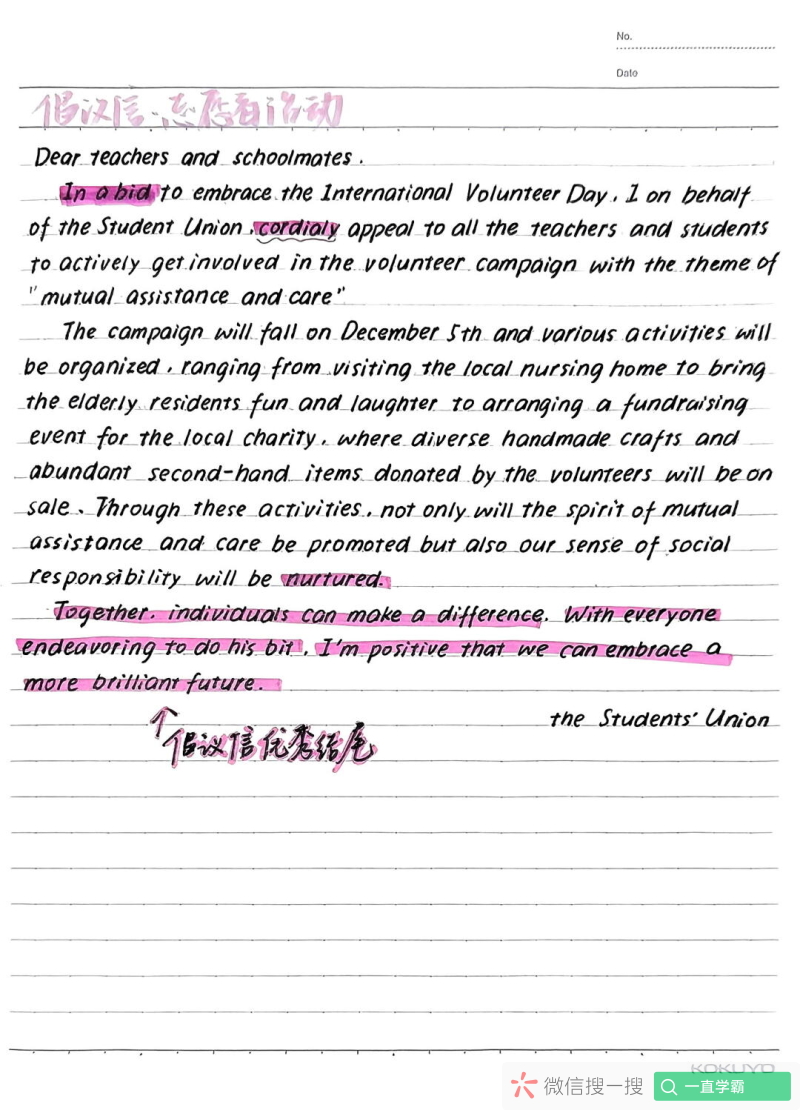 No.
Date
倡议信、志愿者活动
Dear teachers and schoolmates.
In a bid to embrace the International Volunteer Day, I on behalf
of the Student Union, cordialy appeal to all the teachers and students
to actively get involved in the volunteer campaign with the theme of
"mutual assistance and care"
The campaign will fall on December 5th and various activities will
be organized, ranging from visiting the local nursing home to bring
the elderly residents fun and laughter to arranging a fundraising
event for the local charity, where diverse handmade crafts and
abundant second-hand items donated by the volunteers will be on
sale. Through these activities, not only will the spirit of mutual
assistance and care be promoted but also our sense of social
responsibility will be nurtured.
Together, individuals can make a difference. With everyone
endeavoring to do his bit, I'm positive that we can embrace a
more brilliant future.
the Students' Union
↑倡议信优秀结尾
KOKUYO
微信搜一搜 一直学霸